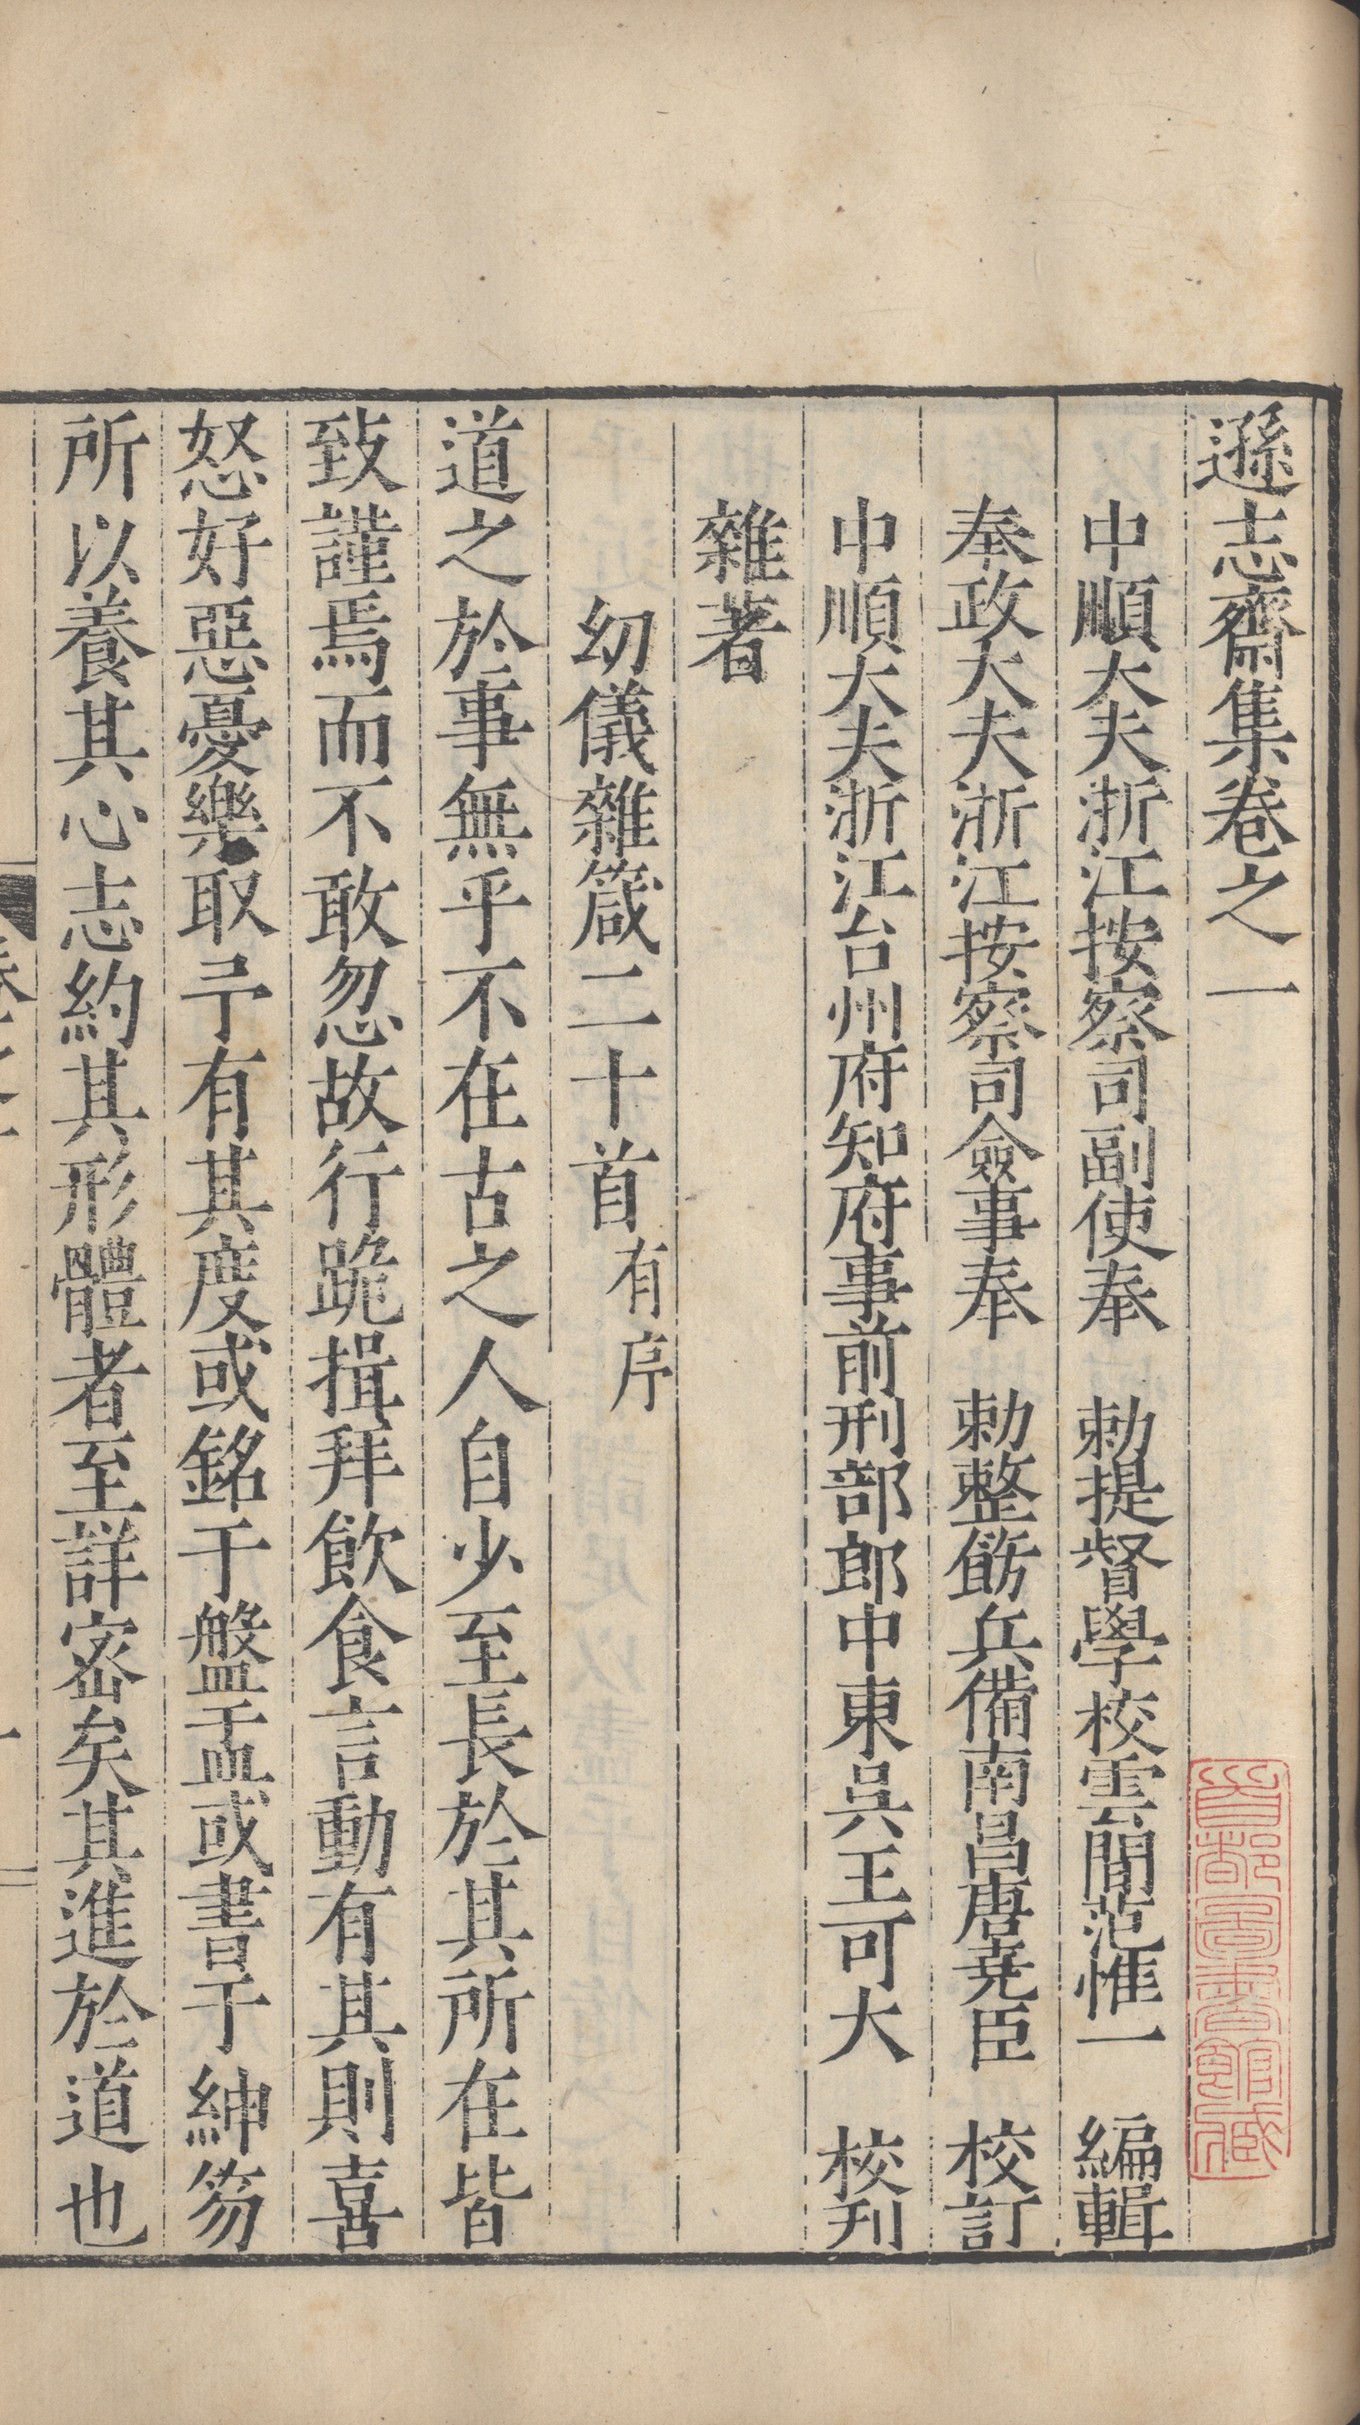 遜志齋集卷之一
中順大夫浙江按察司副使奉　勅提督學校雲間范惟一　編輯
奉政大夫浙江按察司僉事奉　勅整飭兵備南昌唐堯臣　校訂
中順大夫浙江台州府知府事前刑部郎中東吳王可大　校刊
雜著
幼儀雜箴二十首有序
道之於事無乎不在古之人自少至長於其所在皆
致謹焉而不敢忽故行跪揖拜飲食言動有其則喜
怒好惡憂樂取予有其度或銘于盤盂或書于紳笏
所以養其心志約其形體者至詳密矣其進於道也
卷之一
首都圖書館藏